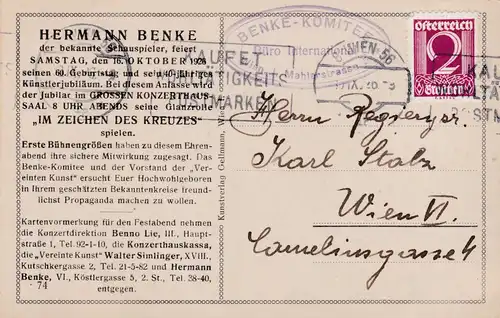 HERMANN BENKE
der bekannte Schauspieler, feiert
SAMSTAG, den 16. OKTOBER 1926
seinen 60. Geburtstag und sein 40-jähriges
Künstlerjubiläum. Bei diesem Anlasse wird
der Jubilar im GROSSEN KONZERTHAUS-
SAAL 8 UHR ABENDS seine Glanzrolle
„IM ZEICHEN DES KREUZES"
spielen.
Erste Bühnengrößen haben zu diesem Ehren-
abend ihre sichere Mitwirkung zugesagt. Das
Benke-Komitee und der Vorstand der „Ver-
einten Kunst" ersucht Euer Hochwohlgeboren
in Ihrem geschätzten Bekanntenkreise freund-
lichst Propaganda machen zu wollen.
Kartenvormerkung für den Festabend nehmen
die Konzertdirektion Benno Lie, III., Haupt-
straße 1, Tel. 92-1-10, die Konzerthauskassa,
die „Vereinte Kunst" Walter Simlinger, XVIII.,
Kutschkergasse 2, Tel. 21-5-82 und Hermann
Benke, VI., Köstlergasse 5, 2. St., Tel. 38-40,
entgegen.
74
Kunstverlag Gallmann, Wien
BENKE-KOMITEE
Büro International
KAUFET
WOHLTÄTIGKEITS
POSTMARKEN
Österreich
2
Groschen
KAU
LTÄT
OSTM
Herrn
Karl Stalz
Wien VI.